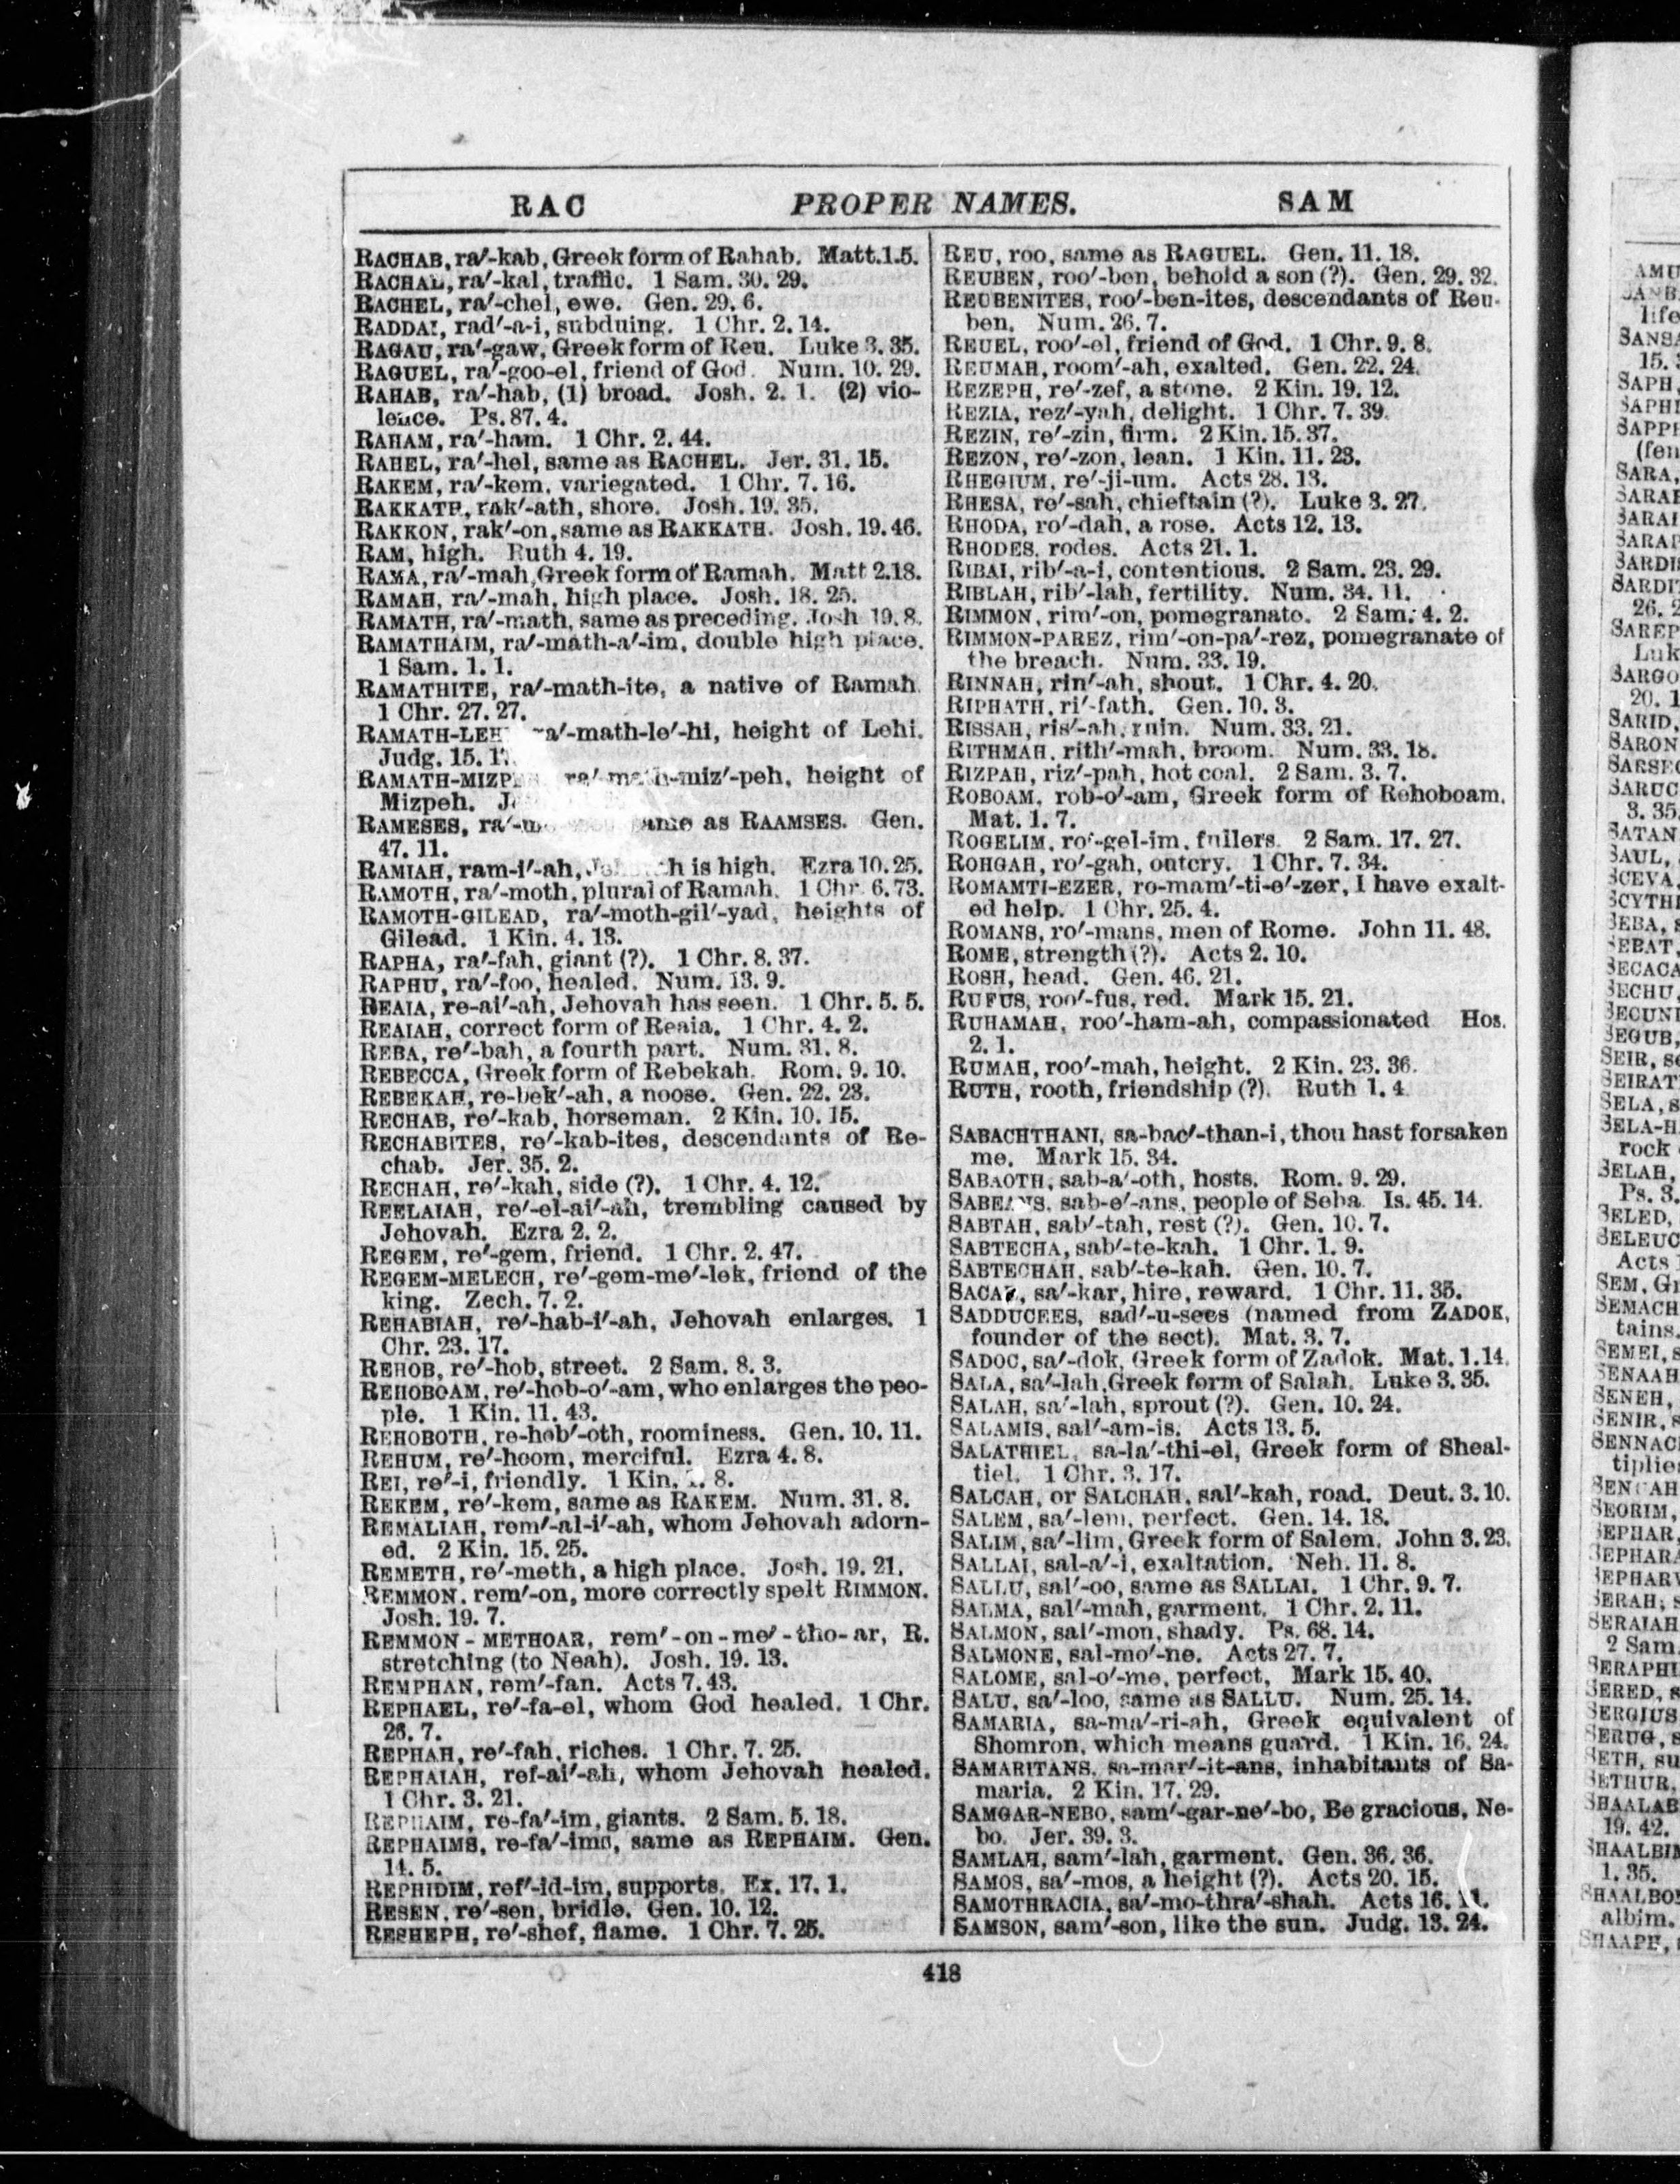 RAC PROPER NAMES. SAM
RACHAB, ra′-kab, Greek form of Rahab. Matt.1.5.
RACHAL, ra′-kal, traffic. 1 Sam. 30. 29.
RACHEL, ra′-chel, ewe. Gen. 29. 6.
RADDAI, rad′-a-i, subduing. 1 Chr. 2. 14.
RAGAU, ra′-gaw, Greek form of Reu. Luke 3. 35.
RAGUEL, ra′-goo-el, friend of God. Num. 10. 29.
RAHAB, ra′-hab, (1) broad. Josh. 2. 1. (2) vio-
lence. Ps. 87. 4.
RAHAM, ra′-ham. 1 Chr. 2. 44.
RAHEL, ra′-hel, same as RACHEL. Jer. 31. 15.
RAKEM, ra′-kem, variegated. 1 Chr. 7. 16.
RAKKATH, rak′-ath, shore. Josh. 19. 35.
RAKKON, rak′-on, same as RAKKATH. Josh. 19. 46.
RAM, high. Ruth 4. 19.
RAMA, ra′-mah, Greek form of Ramah. Matt 2.18.
RAMAH, ra′-mah, high place. Josh. 18. 25.
RAMATH, ra′-math, same as preceding. Josh 19. 8.
RAMATHAIM, ra′-math-a′-im, double high place.
1 Sam. 1. 1.
RAMATHITE, ra′-math-ite, a native of Ramah.
1 Chr. 27. 27.
RAMATH-LEH ra′-math-le′-hi, height of Lehi.
Judg. 15. 17.
RAMATH-MIZPEH, ra′-math-miz′-peh, height of
Mizpeh.
RAMESES, same as RAAMSES. Gen.
47. 11.
RAMIAH, ram-i′-ah, Jehovah is high. Ezra 10. 25.
RAMOTH, ra′-moth, plural of Ramah. 1 Chr. 6. 73.
RAMOTH-GILEAD, ra′-moth-gil′-yad, heights of
Gilead. 1 Kin. 4. 13.
RAPHA, ra′-fah, giant (?). 1 Chr. 8. 37.
RAPHU, ra′-foo, healed. Num. 13. 9.
REAIA, re-ai′-ah, Jehovah has seen. 1 Chr. 5. 5.
REAIAH, correct form of Reaia. 1 Chr. 4. 2.
REBA, re′-bah, a fourth part. Num. 31. 8.
REBECCA, Greek form of Rebekah. Rom. 9. 10.
REBEKAH, re-bek′-ah, a noose. Gen. 22. 23.
RECHAB, re′-kab, horseman. 2 Kin. 10. 15.
RECHABITES, re′-kab-ites, descendants of Re-
chab. Jer. 35. 2.
RECHAH, re′-kah, side (?). 1 Chr. 4. 12.
REELAIAH, re′-el-ai′-ah, trembling caused by
Jehovah. Ezra 2. 2.
REGEM, re′-gem, friend. 1 Chr. 2. 47.
REGEM-MELECH, re′-gem-me′-lek, friend of the
king. Zech. 7. 2.
REHABIAH, re′-hab-i′-ah, Jehovah enlarges. 1
Chr. 23. 17.
REHOB, re′-hob, street. 2 Sam. 8. 3.
REHOBOAM, re′-hob-o′-am, who enlarges the peo-
ple. 1 Kin. 11. 43.
REHOBOTH, re-hob′-oth, roominess. Gen. 10. 11.
REHUM, re′-hoom, merciful. Ezra 4. 8.
REI, re′-i, friendly. 1 Kin. 1. 8.
REKEM, re′-kem, same as RAKEM. Num. 31. 8.
REMALIAH, rem′-al-i′-ah, whom Jehovah adorn-
ed. 2 Kin. 15. 25.
REMETH, re′-meth, a high place. Josh. 19. 21.
REMMON, rem′-on, more correctly spelt RIMMON.
Josh. 19. 7.
REMMON-METHOAR, rem′-on-me′-tho-ar, R.
stretching (to Neah). Josh. 19. 13.
REMPHAN, rem′-fan. Acts 7. 43.
REPHAEL, re′-fa-el, whom God healed. 1 Chr.
26. 7.
REPHAH, re′-fah, riches. 1 Chr. 7. 25.
REPHAIAH, ref-ai′-ah, whom Jehovah healed.
1 Chr. 3. 21.
REPHAIM, re-fa′-im, giants. 2 Sam. 5. 18.
REPHAIMS, re-fa′-ims, same as REPHAIM. Gen.
14. 5.
REPHIDIM, ref′-id-im, supports. Ex. 17. 1.
RESEN, re′-sen, bridle. Gen. 10. 12.
RESHEPH, re′-shef, flame. 1 Chr. 7. 25.
REU, roo, same as RAGUEL. Gen. 11. 18.
REUBEN, roo′-ben, behold a son (?). Gen. 29. 32.
REUBENITES, roo′-ben-ites, descendants of Reu-
ben. Num. 26. 7.
REUEL, roo′-el, friend of God. 1 Chr. 9. 8.
REUMAH, room′-ah, exalted. Gen. 22. 24.
REZEPH, re′-zef, a stone. 2 Kin. 19. 12.
REZIA, rez′-yah, delight. 1 Chr. 7. 39.
REZIN, re′-zin, firm. 2 Kin. 15. 37.
REZON, re′-zon, lean. 1 Kin. 11. 23.
RHEGIUM, re′-ji-um. Acts 28. 13.
RHESA, re′-sah, chieftain (?). Luke 3. 27.
RHODA, ro′-dah, a rose. Acts 12. 13.
RHODES, rodes. Acts 21. 1.
RIBAI, rib′-a-i, contentious. 2 Sam. 23. 29.
RIBLAH, rib′-lah, fertility. Num. 34. 11.
RIMMON, rim′-on, pomegranate. 2 Sam. 4. 2.
RIMMON-PAREZ, rim′-on-pa′-rez, pomegranate of
the breach. Num. 33. 19.
RINNAH, rin′-ah, shout. 1 Chr. 4. 20.
RIPHATH, ri′-fath. Gen. 10. 3.
RISSAH, ris′-ah, ruin. Num. 33. 21.
RITHMAH, rith′-mah, broom. Num. 33. 18.
RIZPAH, riz′-pah, hot coal. 2 Sam. 3. 7.
ROBOAM, rob-o′-am, Greek form of Rehoboam.
Mat. 1. 7.
ROGELIM, ro′-gel-im, fullers. 2 Sam. 17. 27.
ROHGAH, ro′-gah, outcry. 1 Chr. 7. 34.
ROMAMTI-EZER, ro-mam′-ti-e′-zer, I have exalt-
ed help. 1 Chr. 25. 4.
ROMANS, ro′-mans, men of Rome. John 11. 48.
ROME, strength (?). Acts 2. 10.
ROSH, head. Gen. 46. 21.
RUFUS, roo′-fus, red. Mark 15. 21.
RUHAMAH, roo′-ham-ah, compassionated Hos.
2. 1.
RUMAH, roo′-mah, height. 2 Kin. 23. 36.
RUTH, rooth, friendship (?). Ruth 1. 4
SABACHTHANI, sa-bac′-than-i, thou hast forsaken
me. Mark 15. 34.
SABAOTH, sab-a′-oth, hosts. Rom. 9. 29.
SABEANS, sab-e′-ans, people of Seba. Is. 45. 14.
SABTAH, sab′-tah, rest (?). Gen. 10. 7.
SABTECHA, sab′-te-kah. 1 Chr. 1. 9.
SABTECHAH, sab′-te-kah. Gen. 10. 7.
SACAR, sa′-kar, hire, reward. 1 Chr. 11. 35.
SADDUCEES, sad′-u-sees (named from ZADOK,
founder of the sect). Mat. 3. 7.
SADOC, sa′-dok, Greek form of Zadok. Mat. 1.14.
SALA, sa′-lah, Greek form of Salah. Luke 3. 35.
SALAH, sa′-lah, sprout (?). Gen. 10. 24.
SALAMIS, sal′-am-is. Acts 13. 5.
SALATHIEL, sa-la′-thi-el, Greek form of Sheal-
tiel. 1 Chr. 3. 17.
SALCAH, or SALCHAH, sal′-kah, road. Deut. 3. 10.
SALEM, sa′-lem, perfect. Gen. 14. 18.
SALIM, sa′-lim, Greek form of Salem. John 3. 23.
SALLAI, sal-a′-i, exaltation. Neh. 11. 8.
SALLU, sal′-oo, same as SALLAI. 1 Chr. 9. 7.
SALMA, sal′-mah, garment. 1 Chr. 2. 11.
SALMON, sal′-mon, shady. Ps. 68. 14.
SALMONE, sal-mo′-ne. Acts 27. 7.
SALOME, sal-o′-me, perfect, Mark 15. 40.
SALU, sa′-loo, same as SALLU. Num. 25. 14.
SAMARIA, sa-ma′-ri-ah, Greek equivalent of
Shomron, which means guard. 1 Kin. 16. 24.
SAMARITANS, sa-mar′-it-ans, inhabitants of Sa-
maria. 2 Kin. 17. 29.
SAMGAR-NEBO, sam′-gar-ne′-bo, Be gracious, Ne-
bo. Jer. 39. 3.
SAMLAH, sam′-lah, garment. Gen. 36. 36.
SAMOS, sa′-mos, a height (?). Acts 20. 15.
SAMOTHRACIA, sa′-mo-thra′-shah. Acts 16. 11.
SAMSON, sam′-son, like the sun. Judg. 13. 24.
418